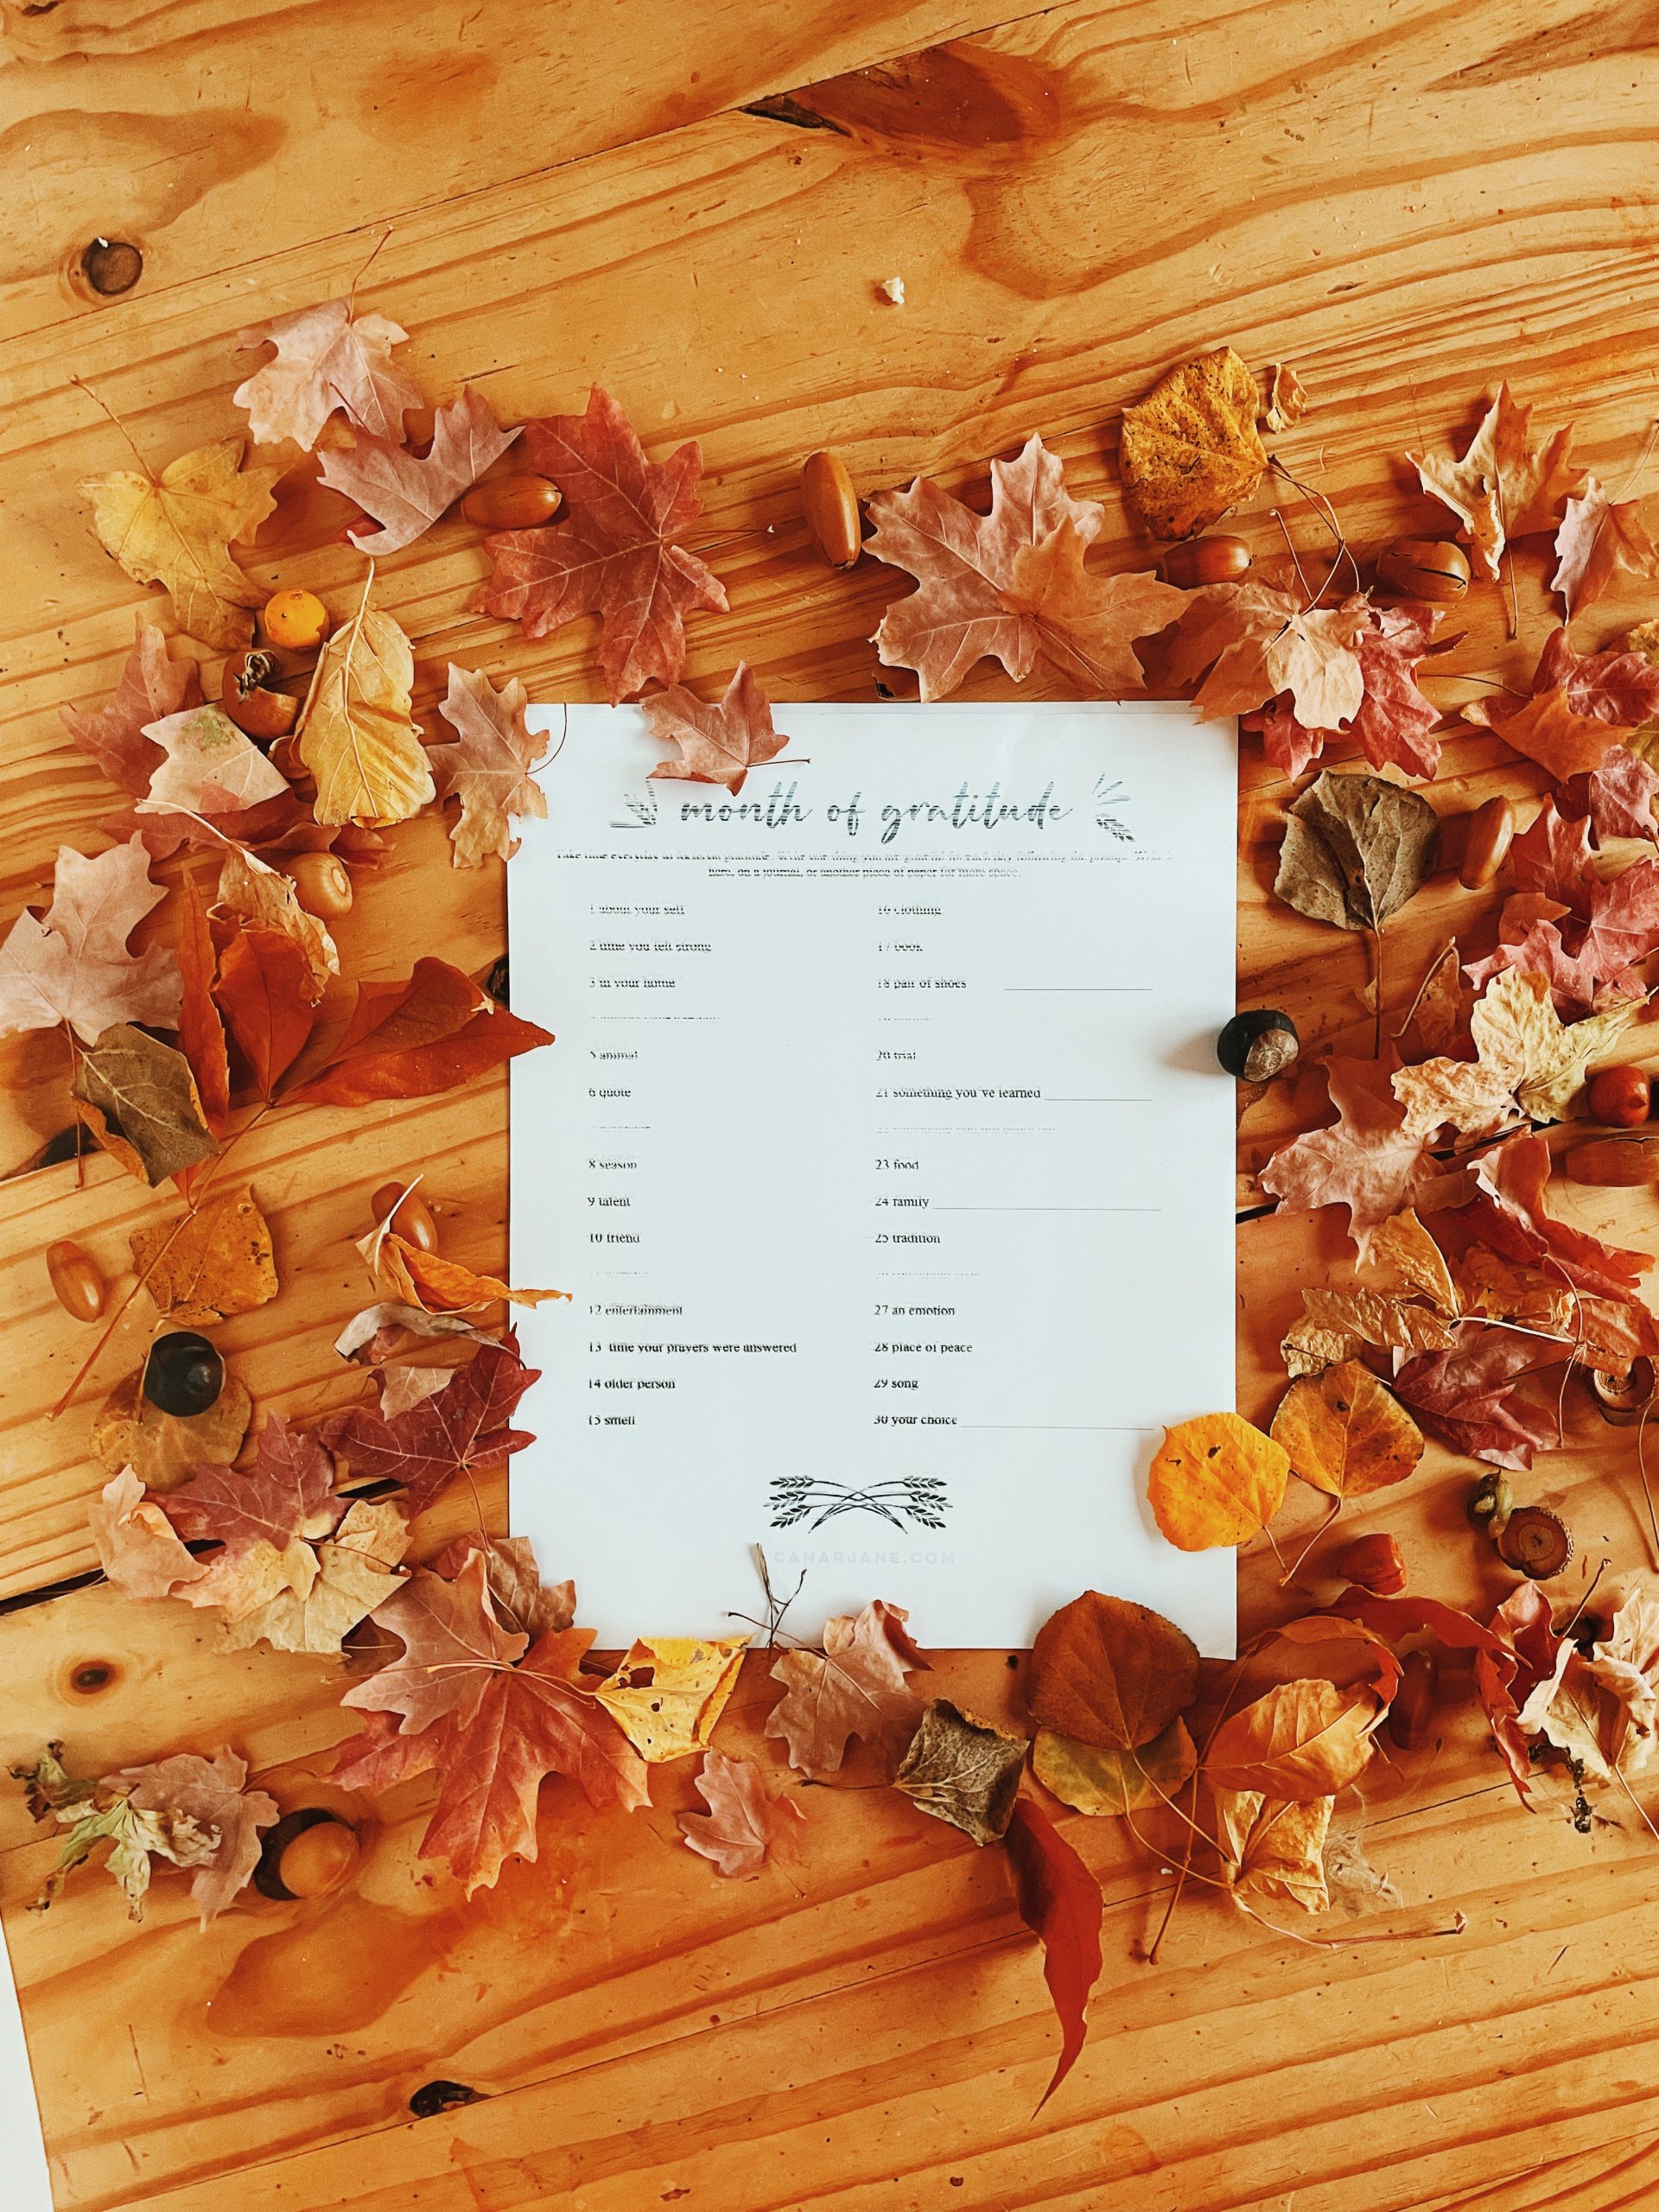 month of gratitude
Take time everyday to focus on gratitude. Write one thing you are grateful for each day following the prompt. Write
here, on a journal, or another piece of paper for more space.
1 about your self
2 time you felt strong
3 in your home
5 animal
6 quote
8 season
9 talent
10 friend
12 entertainment
13 time your prayers were answered
14 older person
15 smell
16 clothing
17 book
18 pair of shoes
20 trial
21 something you've learned
23 food
24 family
25 tradition
27 an emotion
28 place of peace
29 song
30 your choice
CANARJANE.COM